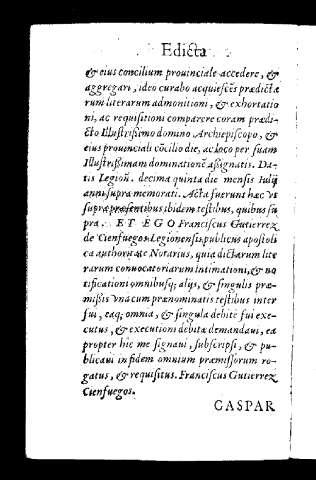 Edicta
& eius concilium prouinciale accedere, &
aggregari, ideo curabo acquiescẽs prædicta
rum literarum admonitioni, & exhortatio
ni, ac requisitioni comparere coram prædi-
cto Illustrißimo domino Archiepiscopo, &
eius prouinciali cõcilio die, ac loco per suam
Illustrißimam dominationẽ aßignatis. Da-
tis Legioñ. decima quinta die mensis Iulij
anni supra memorati. Acta fuerunt hæc vt
supra præsentibus ibidem testibus, quibus su
pra. ET EGO Franciscus Gutierrez
de Cienfuegos Legionensis, publicus apostoli
ca authoritate Notarius, quia dictarum lite
rarum conuocatoriarum intimationi, & no
tificationi omnibusq; alijs, & singulis præ-
mißis vna cum prænominatis testibus inter
fui, eaq; omnia, & singula debite fui exe-
cutus, & executioni debitæ demandaui, ea
propter hic me signaui, subscripsi, & pu-
blicaui in fidem omnium præmissorum ro-
gatus, & requisitus. Franciscus Gutierrez
Cienfuegos.
GASPAR